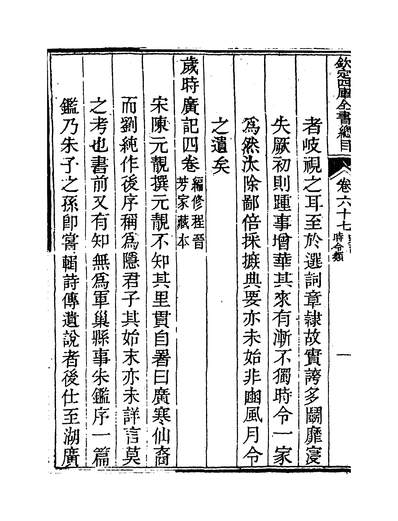 欽定四庫全書總目
卷六十七 時令類
一
者歧視之耳至於選詞章隸故實誇多鬬靡寖
失厥初則踵事增華其來有漸不獨時令一家
爲然汰除鄙倍採摭典要亦未始非豳風月令
之遺矣
歲時廣記四卷編修程晉
芳家藏本
宋陳元靚撰元靚不知其里貫自署曰廣寒仙裔
而劉純作後序稱爲隱君子其始末亦未詳言莫
之考也書前又有知無爲軍巢縣事朱鑑序一篇
鑑乃朱子之孫卽嘗輯詩傳遺說者後仕至湖廣